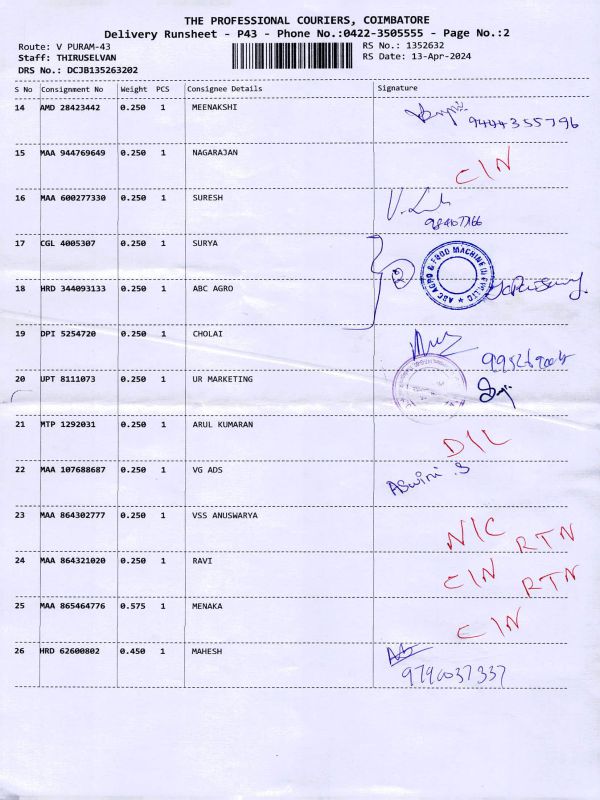 THE PROFESSIONAL COURIERS, COIMBATORE
Delivery Runsheet - P43 - Phone No.:0422-3505555 - Page No.:2
Route: V PURAM-43 RS No.: 1352632
Staff: THIRUSELVAN RS Date: 13-Apr-2024
DRS No.: DCJB135263202
S No Consignment No Weight PCS Consignee Details Signature
14 AMD 28423442 0.250 1 MEENAKSHI 9444355796
15 MAA 944769649 0.250 1 NAGARAJAN C/N
16 MAA 600277330 0.250 1 SURESH
17 CGL 4005307 0.250 1 SURYA
2 ABC AGRO & FOOD MACHINE (I) PVT. LTD
18 HRD 344093133 0.250 1 ABC AGRO
19 DPI 5254720 0.250 1 CHOLAI
20 UPT 8111073 0.250 1 UR MARKETING
21 MTP 1292031 0.250 1 ARUL KUMARAN D/L
22 MAA 107688687 0.250 1 VG ADS Aswini .S
23 MAA 864302777 0.250 1 VSS ANUSWARYA N/C RTN
24 MAA 864321020 0.250 1 RAVI C/N RTN
25 MAA 865464776 0.575 1 MENAKA C/N
26 HRD 62600802 0.450 1 MAHESH
9790037337